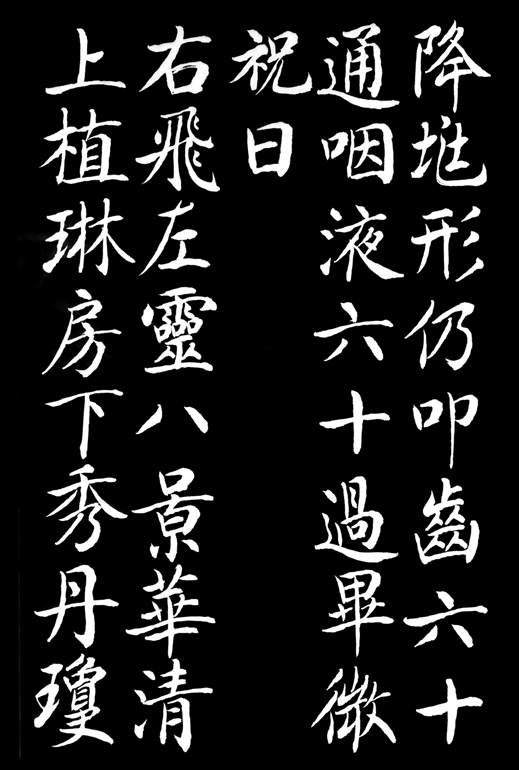 降形仍叩齒六十
通咽液六十過畢微
祝曰
右飛左靈八景華清
上植琳房下秀丹瓊